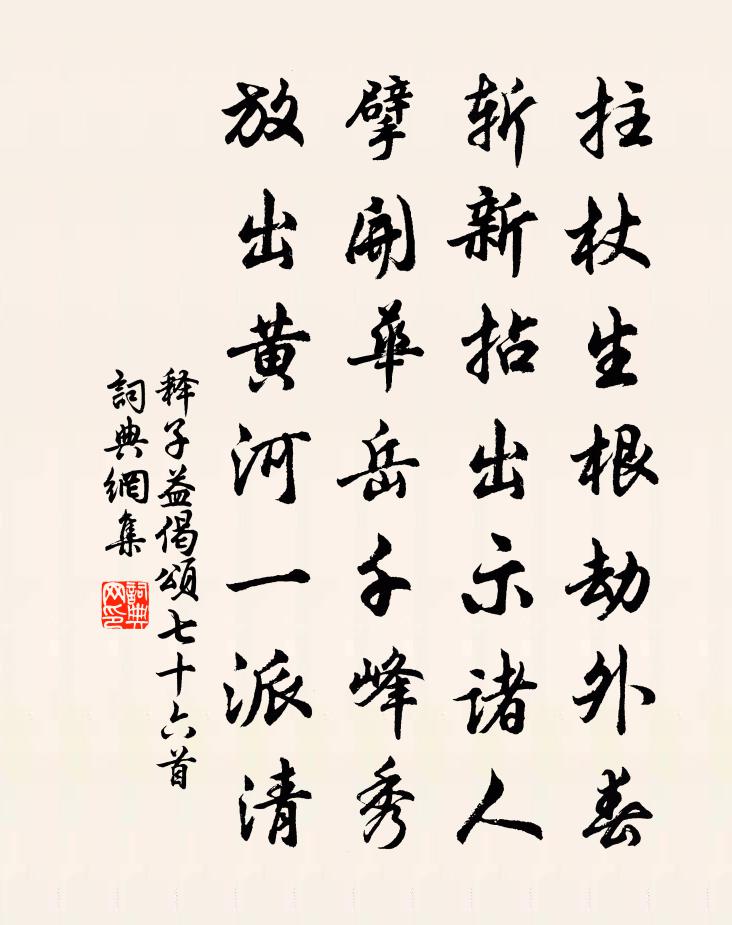 拄杖生根劫外春
斩新拈出示诸人
擘開華岳千峰秀
放出黄河一派清
释子益偈頌七十六首
詞典網集
詞典网印